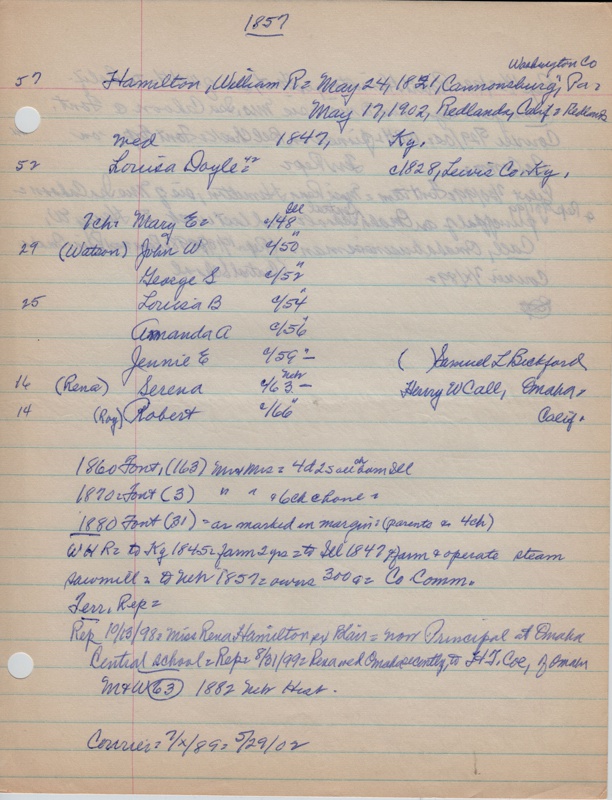 1857
Washington Co
57 Hamilton, William R = May 24, 1821, Cannonsburg, Pa =
May 17, 1902, Redlands, Calif = Redlands
med 1847, Ky.
52 Louisa Doyle = 42 c1828, Lewis Co. Ky.
7ch = Mary E = c/48 Ill
29 (Watson) John W c/50 "
George S c/52 "
25 Louisa B c/54 "
Amanda A c/56 "
Jennie E c/59 = ( ) Samuel L Beckford
16 (Rena) Serena c/63 = Neb Harry W Call, Omaha,
14 (Roy) Robert c/66 " Calif.
1860 Font, (163) Mr & Mrs = 4d 2s all ch born Ill
1870 = Font (3) " " & 6 ch c home =
1880 Font (31) = as marked in margin = (parents & 4ch)
W H R = to Ky 1845 = farm 2 yrs = to Ill 1847 = farm & operate steam
sawmill = to Neb 1857 = owns 300 a = Co Comm.
Terr. Rep =
Rep 10/13/98 = Miss Rena Hamilton ex Blair = now Principal at Omaha
Central school = Rep = 8/31/99 = Rena wed Omaha recently to H. T. Coe, of Omaha
M & W 63 1882 Neb Hist.
Courier = 7/x/89 = 5/29/02